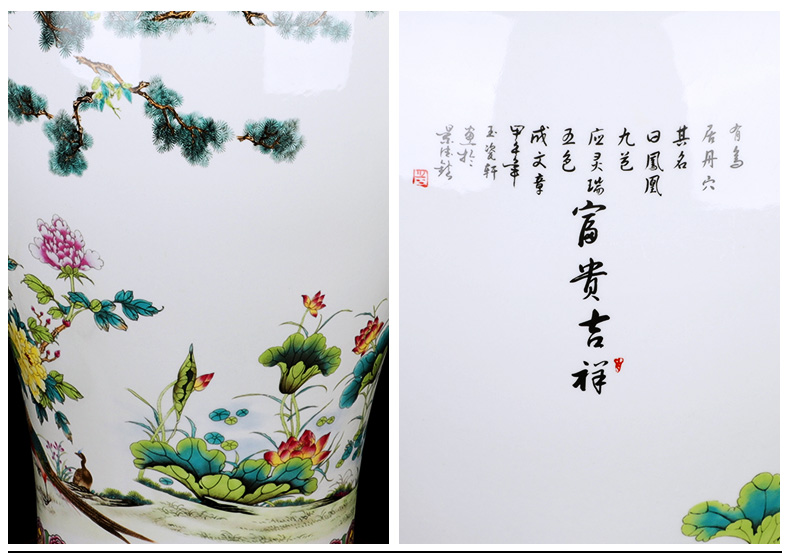 有鸟
居丹穴
其名
曰鳳凰
九苞
应灵瑞
五色
成文章
甲午年
玉瓷轩
画於
景德镇
富贵吉祥